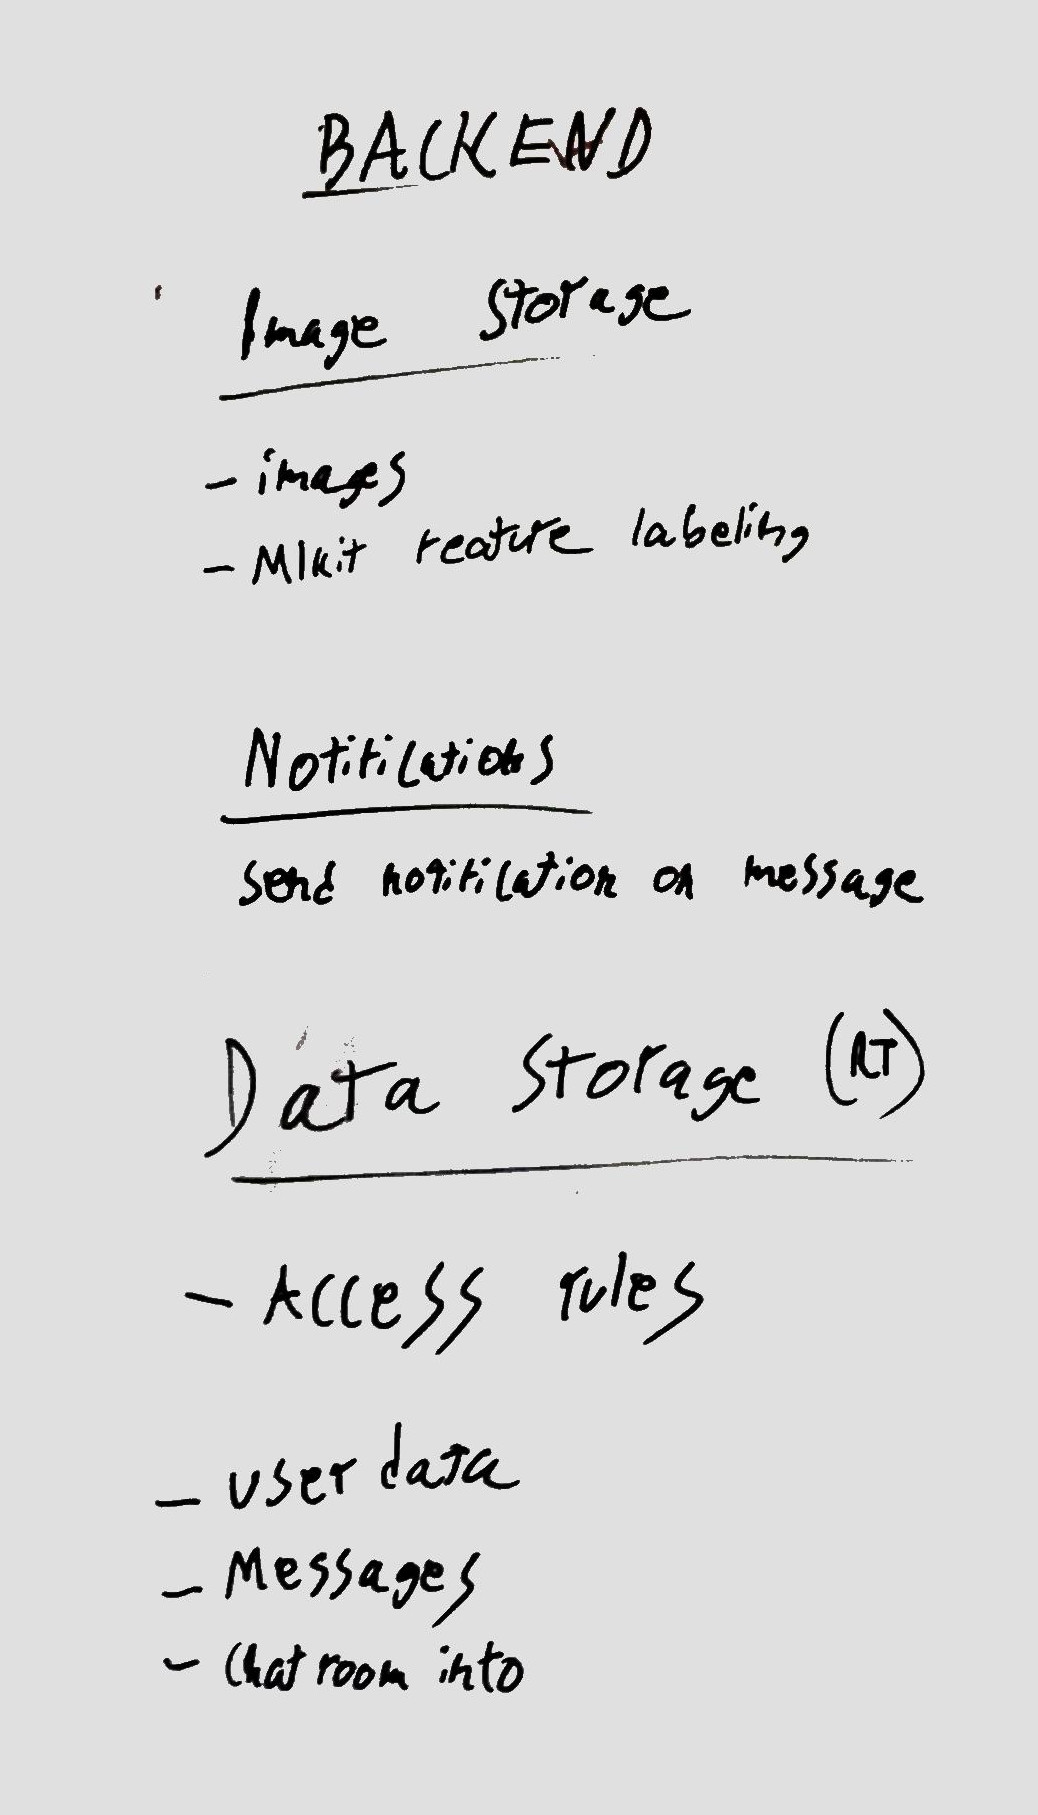 BACKEND
Image Storage
- images
- Mlkit feature labeling
Notifications
send notification on message
Data Storage (RT)
- Access rules
- user data
- Messages
- Chatroom info